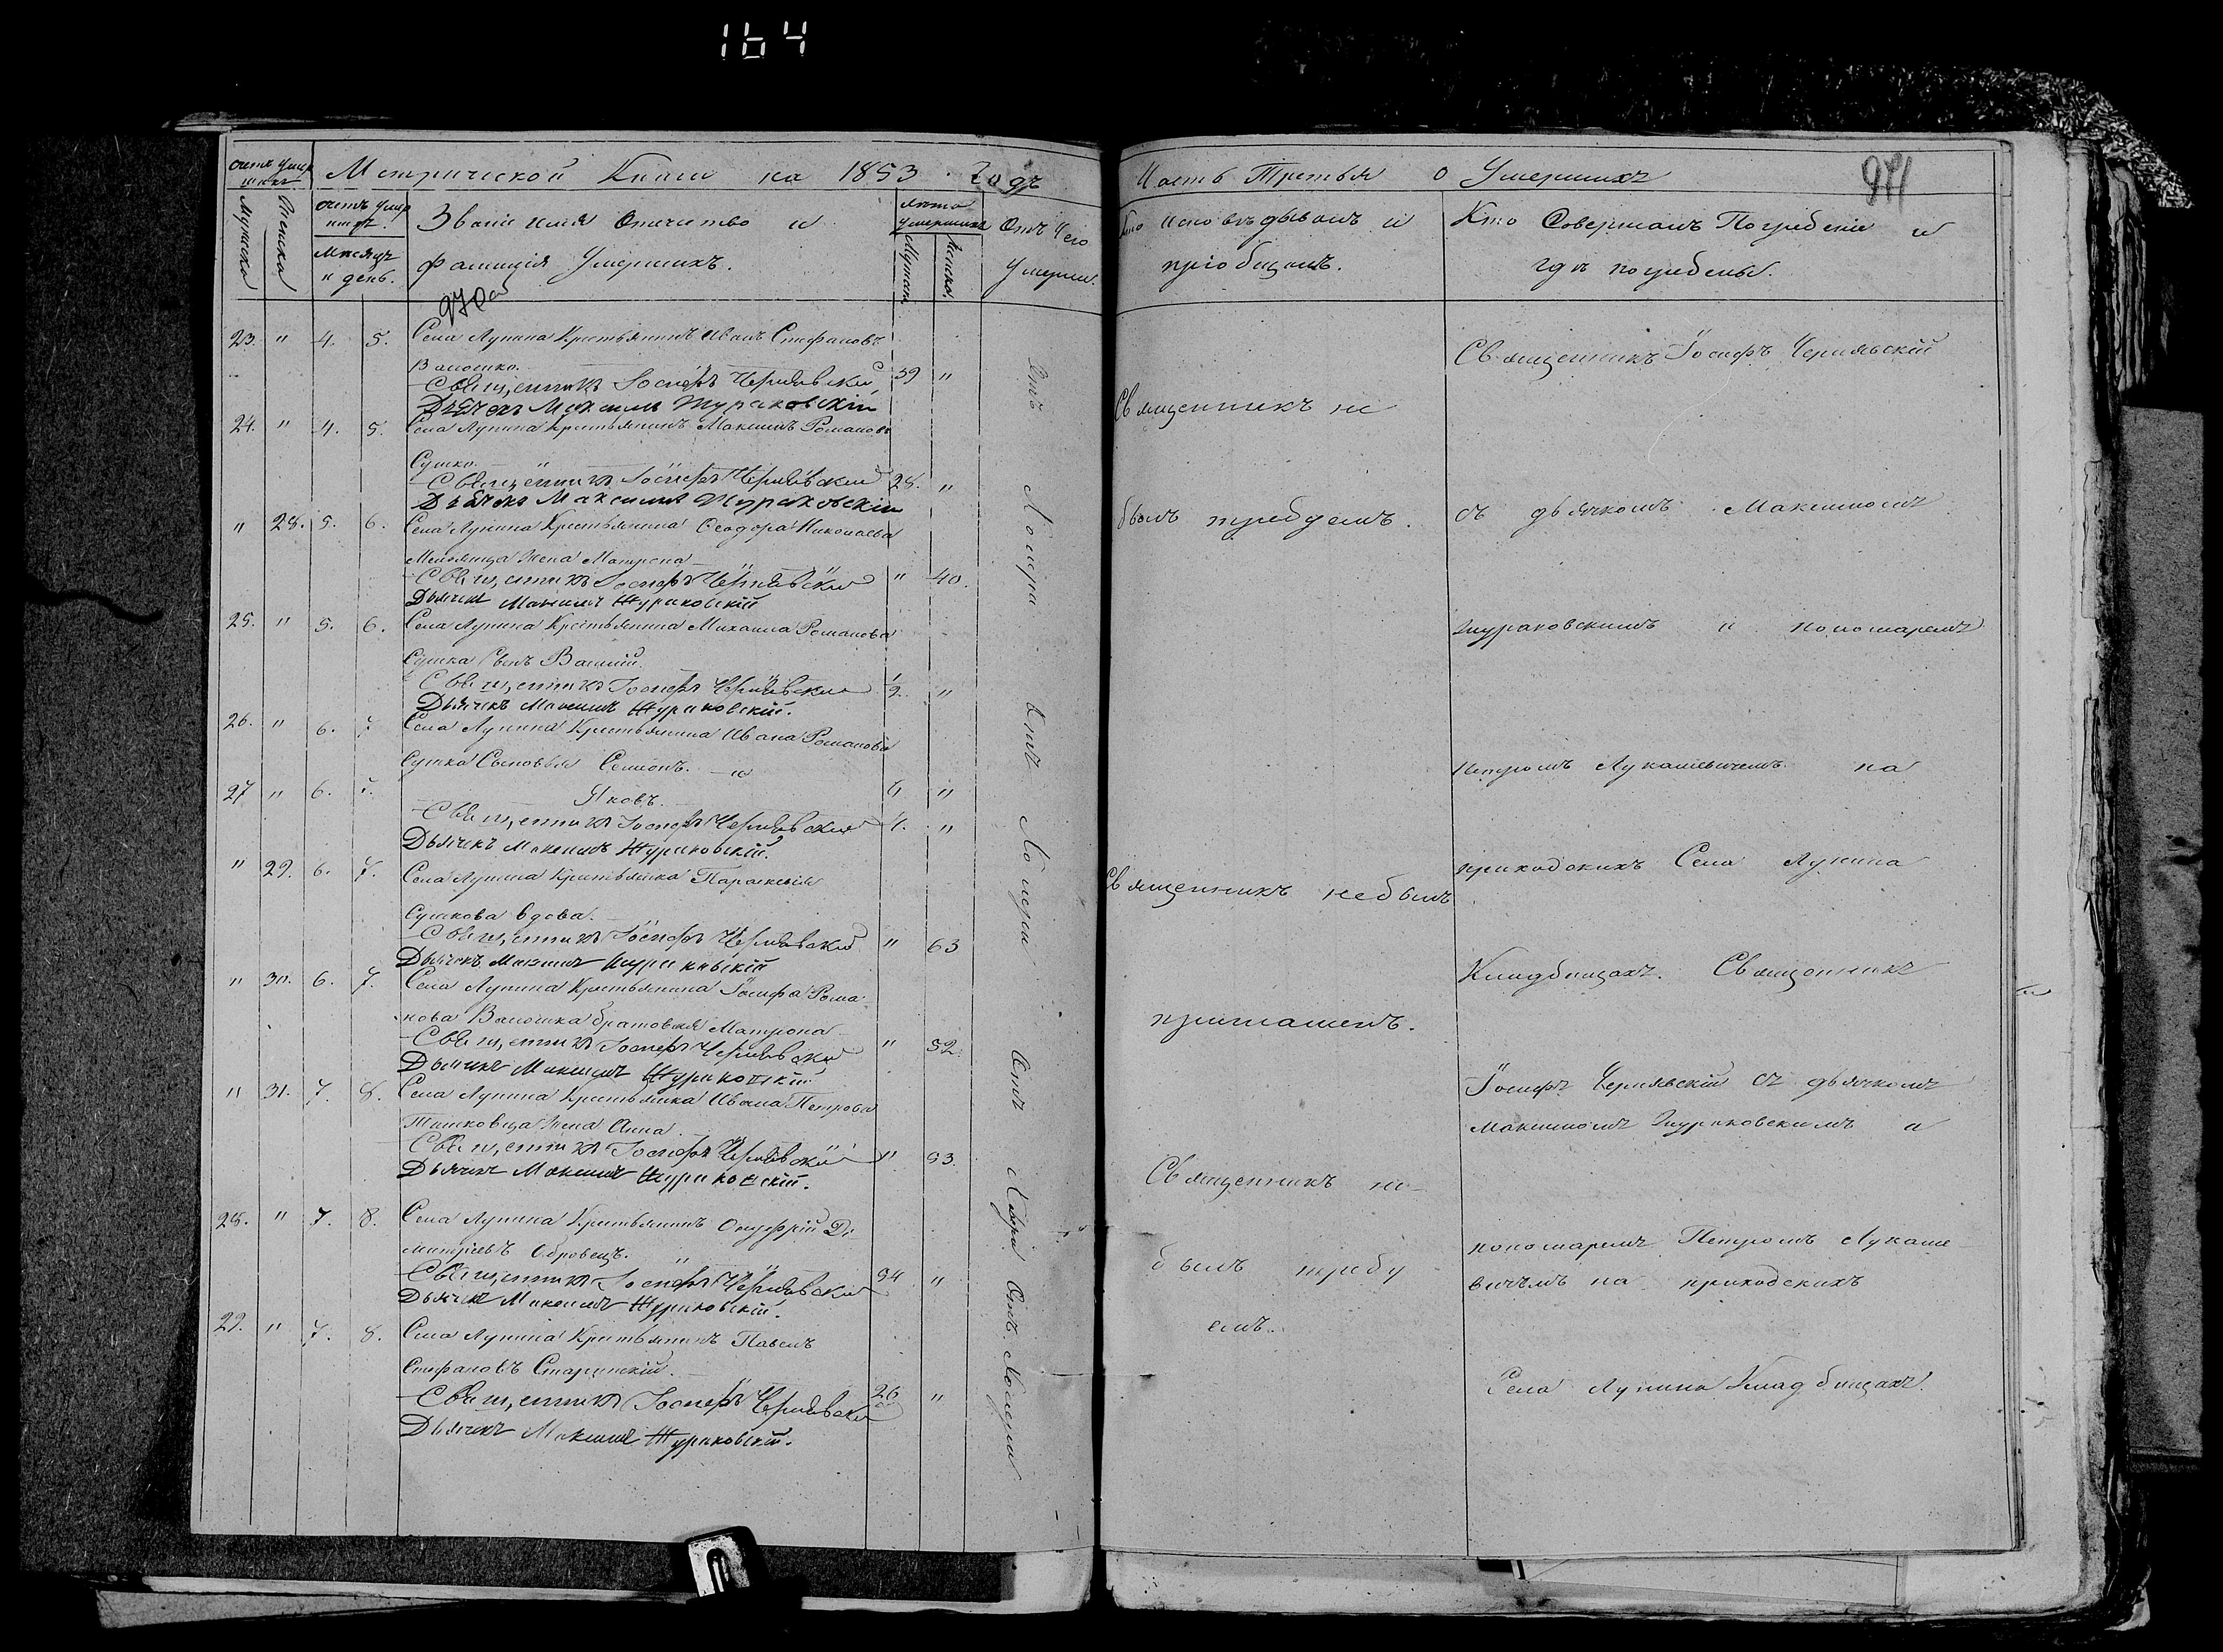 164
счетъ умер
шихъ
Метрической Книги на 1853 Годъ
Мужеска
Женска
Месяцъ
и день.
Званіе имя Отчество и
фамилія Умершихъ.
лета
умершихъ
Мужеск.
Женска.
Отъ Чего
Умерли.
23. " 4. 5. Села Лунина Крестьянинъ Иванъ Стефановъ
Волошко. 39 "
Священникъ Іосифъ Чернявскій
Дьячекъ Максимъ Жураковскій
24. " 4. 5. Села Лунина Крестьянинъ Максимъ Романовъ
Сушко. "
Священникъ Іосифъ Чернявскій 28. "
Дьячекъ Максимъ Жураковскій
" 28. 5. 6. Села Лунина Крестьянина Ѳеодора Николаева
Жена Матрона
Священникъ Іосифъ Чернявскій " 40.
Дьячекъ Максимъ Жураковскій
25. " 5. 6. Села Лунина Крестьянина Михаила Романова
Сушка Сынъ Василій.
Священникъ Іосифъ Чернявскій 1/2. "
Дьячекъ Максимъ Жураковскій.
26. " 6. 7 Села Лунина Крестьянина Ивана Романова
Сушка Сыновья Семіонъ. и
27 " 6. 7. Яковъ. "
Священникъ Іосифъ Чернявскій "
Дьячекъ Максимъ Жураковскій.
" 29. 6. 7. Села Лунина Крестьянка Параскевія
Сушкова вдова.
Священникъ Іосифъ Чернявскій " 63
Дьячекъ Максимъ Жураковскій
" 30. 6. 7. Села Лунина Крестьянина Іосифа Рома
нова Волошка братовая Матрона
Священникъ Іосифъ Чернявскій " 52.
Дьячекъ Максимъ Жураковскій
" 31. 7. 8. Села Лунина Крестьянина Ивана Петрова
Жена Анна
Священникъ Іосифъ Чернявскій " 53.
Дьячекъ Максимъ Жураковскій.
28. " 7. 8. Села Лунина Крестьянинъ Онуфрій Ди
митріевъ Обровецъ. "
Священникъ Іосифъ Чернявскій 54 "
Дьячекъ Максимъ Жураковскій.
29. " 7. 8. Села Лунина Крестьянинъ Павелъ
Стефановъ Старинскій.
Священникъ Іосифъ Чернявскій 26 "
Дьячекъ Максимъ Жураковскій.
Отъ Холеры Отъ Холеры Отъ Холеры Отъ Холеры
Часть Третья о Умершихъ
271
Кто исповѣдывалъ и
пріобщалъ.
Кто Совершалъ Погребеніе и
гдѣ погребены.
Священникъ не
былъ требуемъ.
Священникъ небылъ
приглашенъ.
Священникъ не
былъ требу
емъ.
Священникъ Іосифъ Чернявскій
съ дьячкомъ Максимомъ
Жураковскимъ и пономаремъ
Петромъ Лукашевичемъ на
приходскихъ Села Лунина
Кладбищахъ. Священникъ
Іосифъ Чернявскій съ дьячкомъ
Максимомъ Жураковскимъ и
пономаремъ Петромъ Лукаше
вичемъ на приходскихъ
Села Лунина Кладбищахъ.